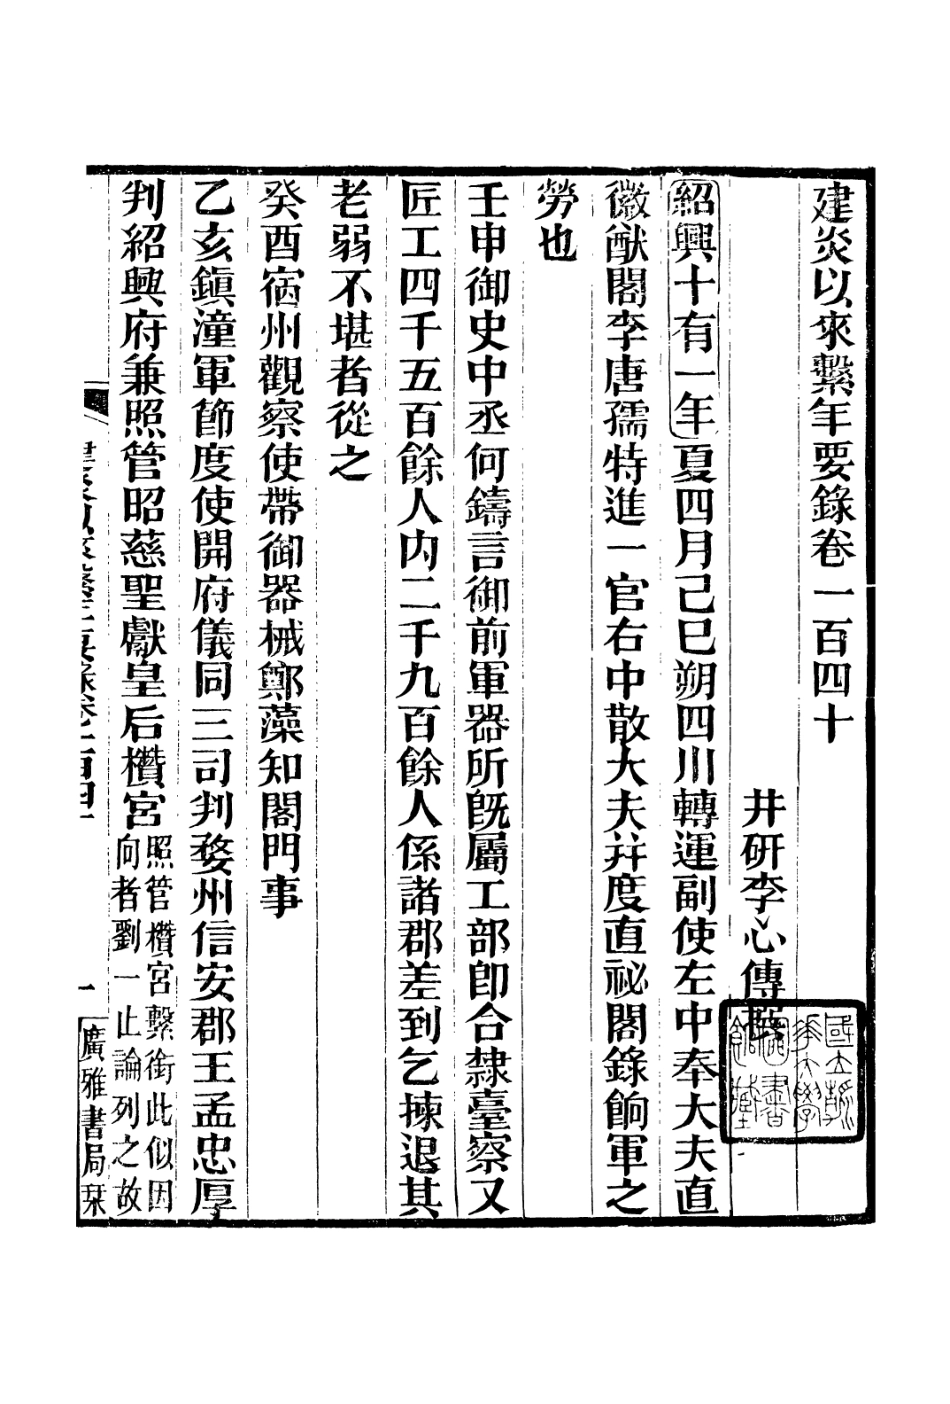 建炎以來繫年要錄卷一百四十
井研李心傳撰
紹興十有一年夏四月己巳朔四川轉運副使左中奉大夫直
徽猷閣李唐孺特進一官右中散大夫幷度直祕閣錄餉軍之
勞也
壬申御史中丞何鑄言御前軍器所旣屬工部卽合隸臺察又
匠工四千五百餘人内二千九百餘人係諸郡差到乞揀退其
老弱不堪者從之
癸酉宿州觀察使帶御器械鄭藻知閤門事
乙亥鎭潼軍節度使開府儀同三司判婺州信安郡王孟忠厚
判紹興府兼照管昭慈聖獻皇后欑宮
照管欑宮繫銜此似因
向者劉一止論列之故
一
廣雅書局栞